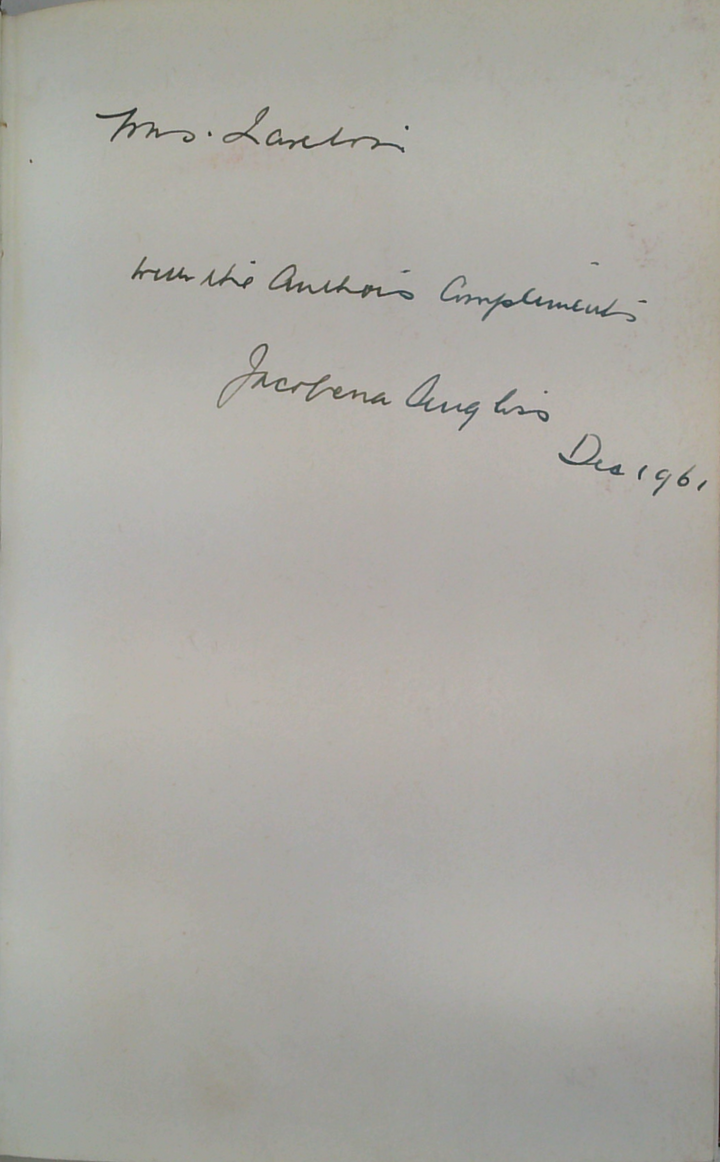 Mrs.
with the Author's Compliments
Jacobena Angliss
Dec 1961